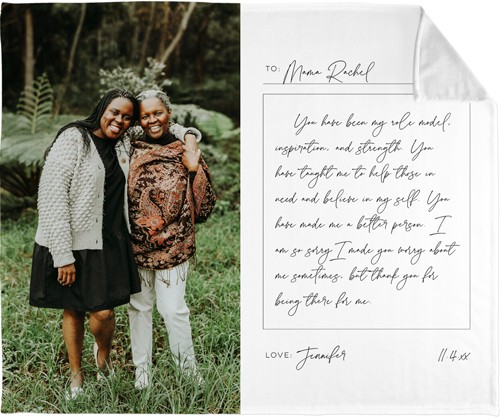 TO: Mama Rachel
You have been my role model,
inspiration, and strength. You
have taught me to help those in
need and believe in my self. You
have made me a better person. I
am so sorry I made you worry about
me sometimes, but thank you for
being there for me.
LOVE: Jennifer 11.4.xx